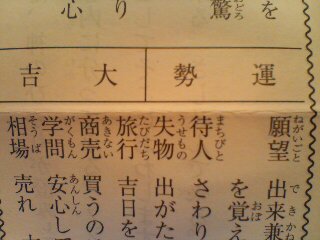 を驚
り
心
運勢
大吉
願望 出来兼
を覚え
待人 さわり
失物 出がた
旅行 吉日を
商売 買うの
学問 安心し
相場 売れ